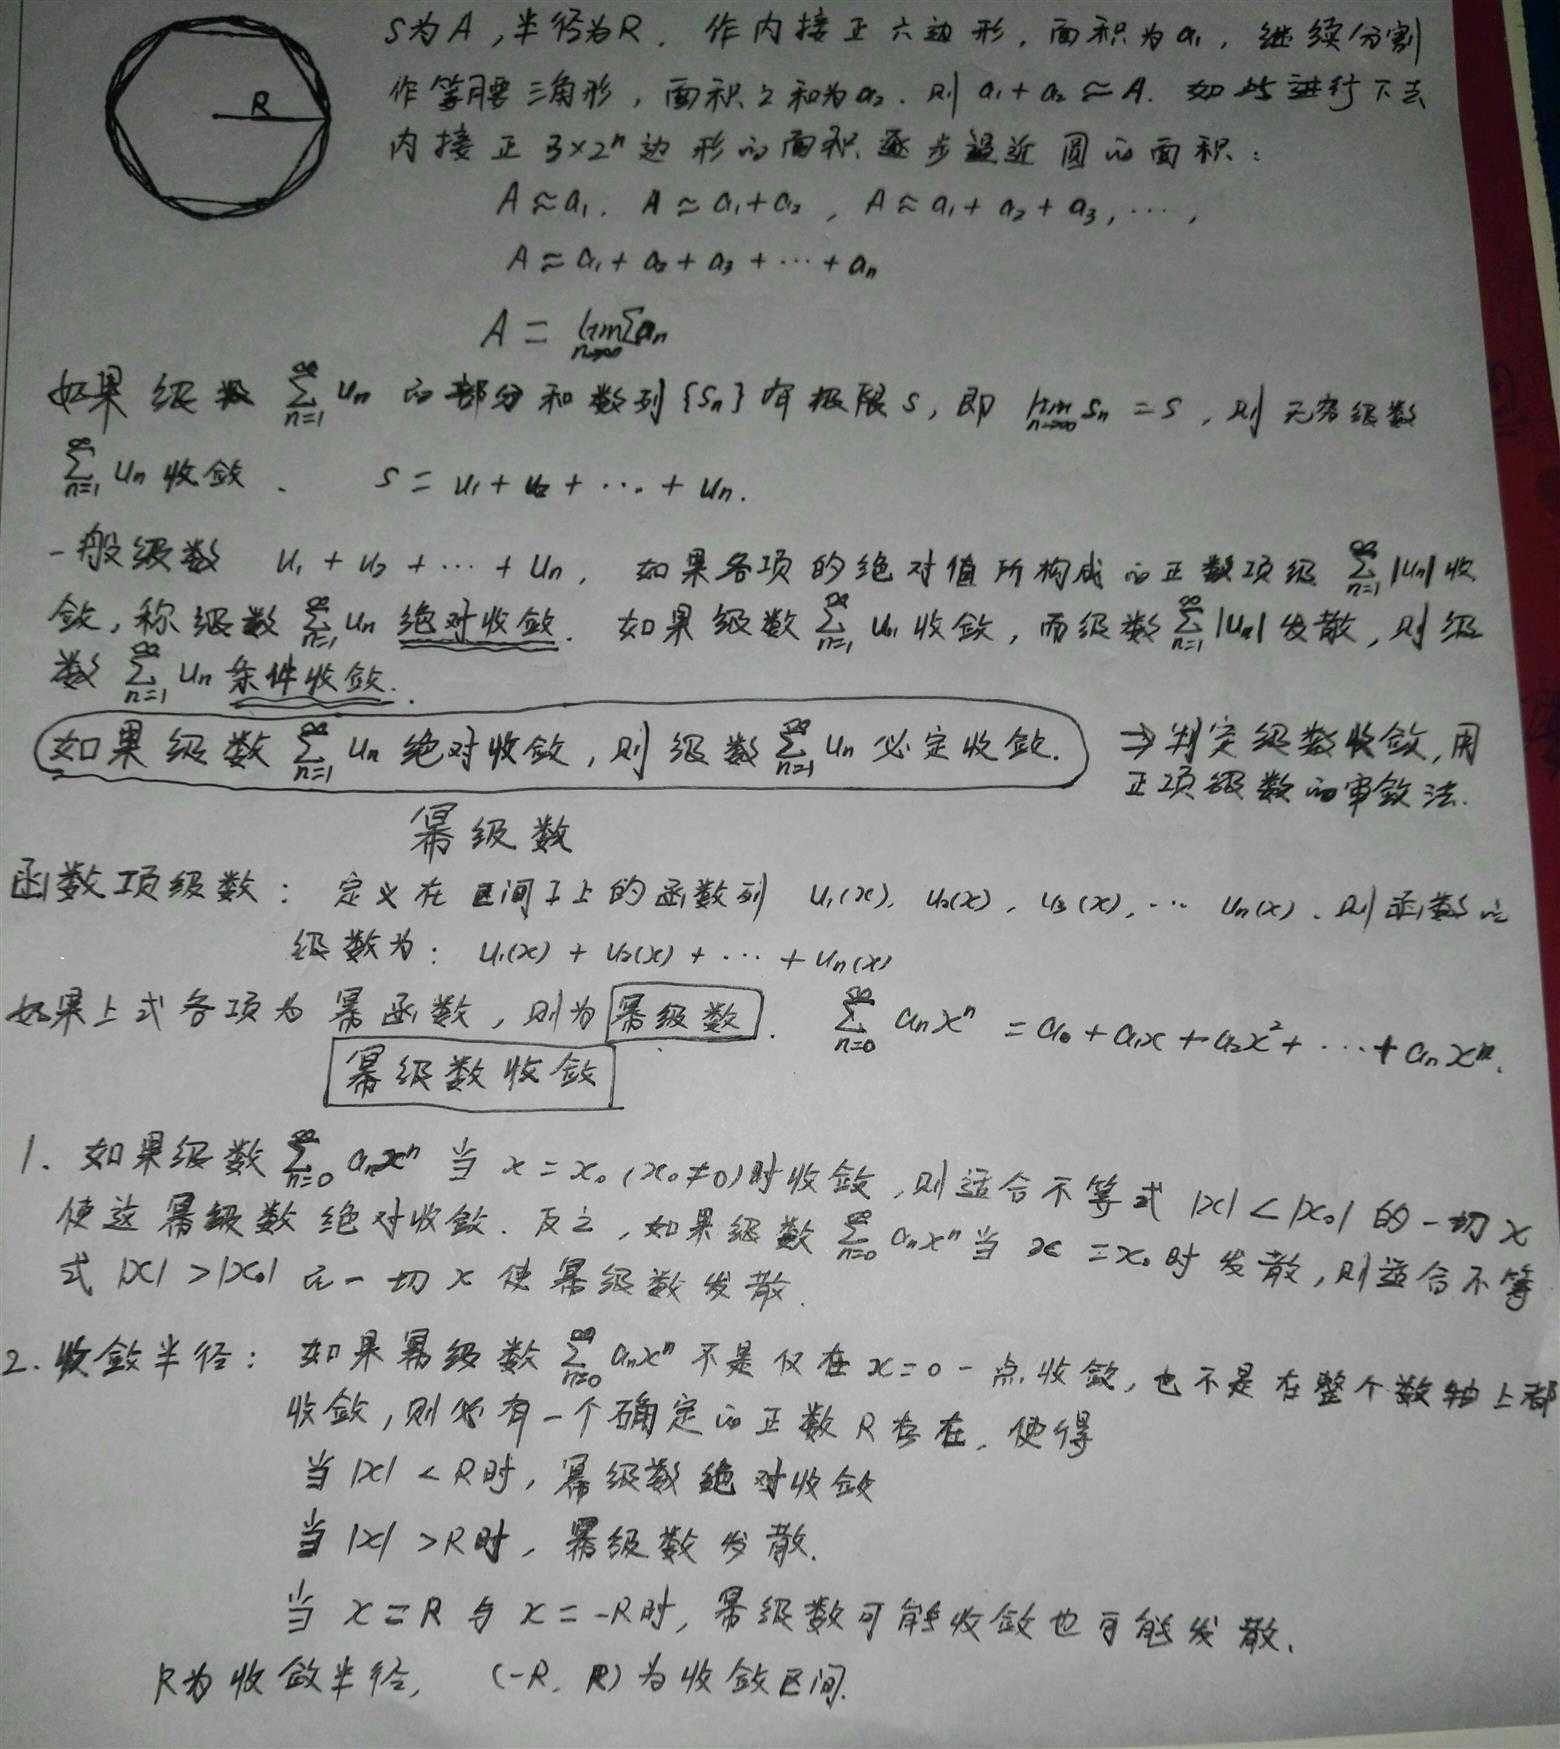 S为A,半径为R. 作内接正六边形,面积为a₁,继续分割
R
作等腰三角形,面积之和为a₂.则 a₁+a₂≈A. 如此进行下去
内接正3×2ⁿ边形的面积逐步逼近圆的面积:
A≈a₁. A≈a₁+a₂, A≈a₁+a₂+a₃,…,
A≈a₁+a₂+a₃+…+aₙ
A = lim_{n→∞} Σaₙ
如果级数 ∑_{n=1}^{∞} uₙ 的部分和数列{Sₙ}有极限S,即 lim_{n→∞} Sₙ=S,则无穷级数
∑_{n=1}^{∞} uₙ 收敛. S=u₁+u₂+…+uₙ.
一般级数 u₁+u₂+…+uₙ, 如果各项的绝对值所构成的正数项级 ∑_{n=1}^{∞}|uₙ|收
敛,称级数 ∑_{n=1}^{∞} uₙ 绝对收敛. 如果级数 ∑_{n=1}^{∞} uₙ 收敛,而级数 ∑_{n=1}^{∞}|uₙ|发散,则级
数 ∑_{n=1}^{∞} uₙ 条件收敛.
如果级数 ∑_{n=1}^{∞} uₙ 绝对收敛,则级数 ∑_{n=1}^{∞} uₙ 必定收敛. ⇒判定级数收敛,用
正项级数的审敛法.
幂级数
函数项级数: 定义在区间I上的函数列 u₁(x), u₂(x), u₃(x),… uₙ(x).则函数的
级数为: u₁(x)+u₂(x)+…+uₙ(x)
如果上式各项为幂函数,则为幂级数. ∑_{n=0}^{∞} aₙxⁿ =a₀+a₁x+a₂x²+…+aₙxⁿ.
幂级数收敛
1. 如果级数 ∑_{n=0}^{∞} aₙxⁿ 当 x=x₀(x₀≠0)时收敛,则适合不等式 |x|<|x₀| 的一切x
使这幂级数绝对收敛.反之,如果级数 ∑_{n=0}^{∞} aₙxⁿ 当 x=x₀时发散,则适合不等
式|x|>|x₀|的一切x使幂级数发散.
2. 收敛半径: 如果幂级数 ∑_{n=0}^{∞} aₙxⁿ 不是仅在x=0一点收敛,也不是在整个数轴上都
收敛,则必有一个确定的正数R存在,使得
当|x|<R时,幂级数绝对收敛
当|x|>R时,幂级数发散.
当 x=R与x=-R时,幂级数可能收敛也可能发散.
R为收敛半径, (-R, R)为收敛区间.